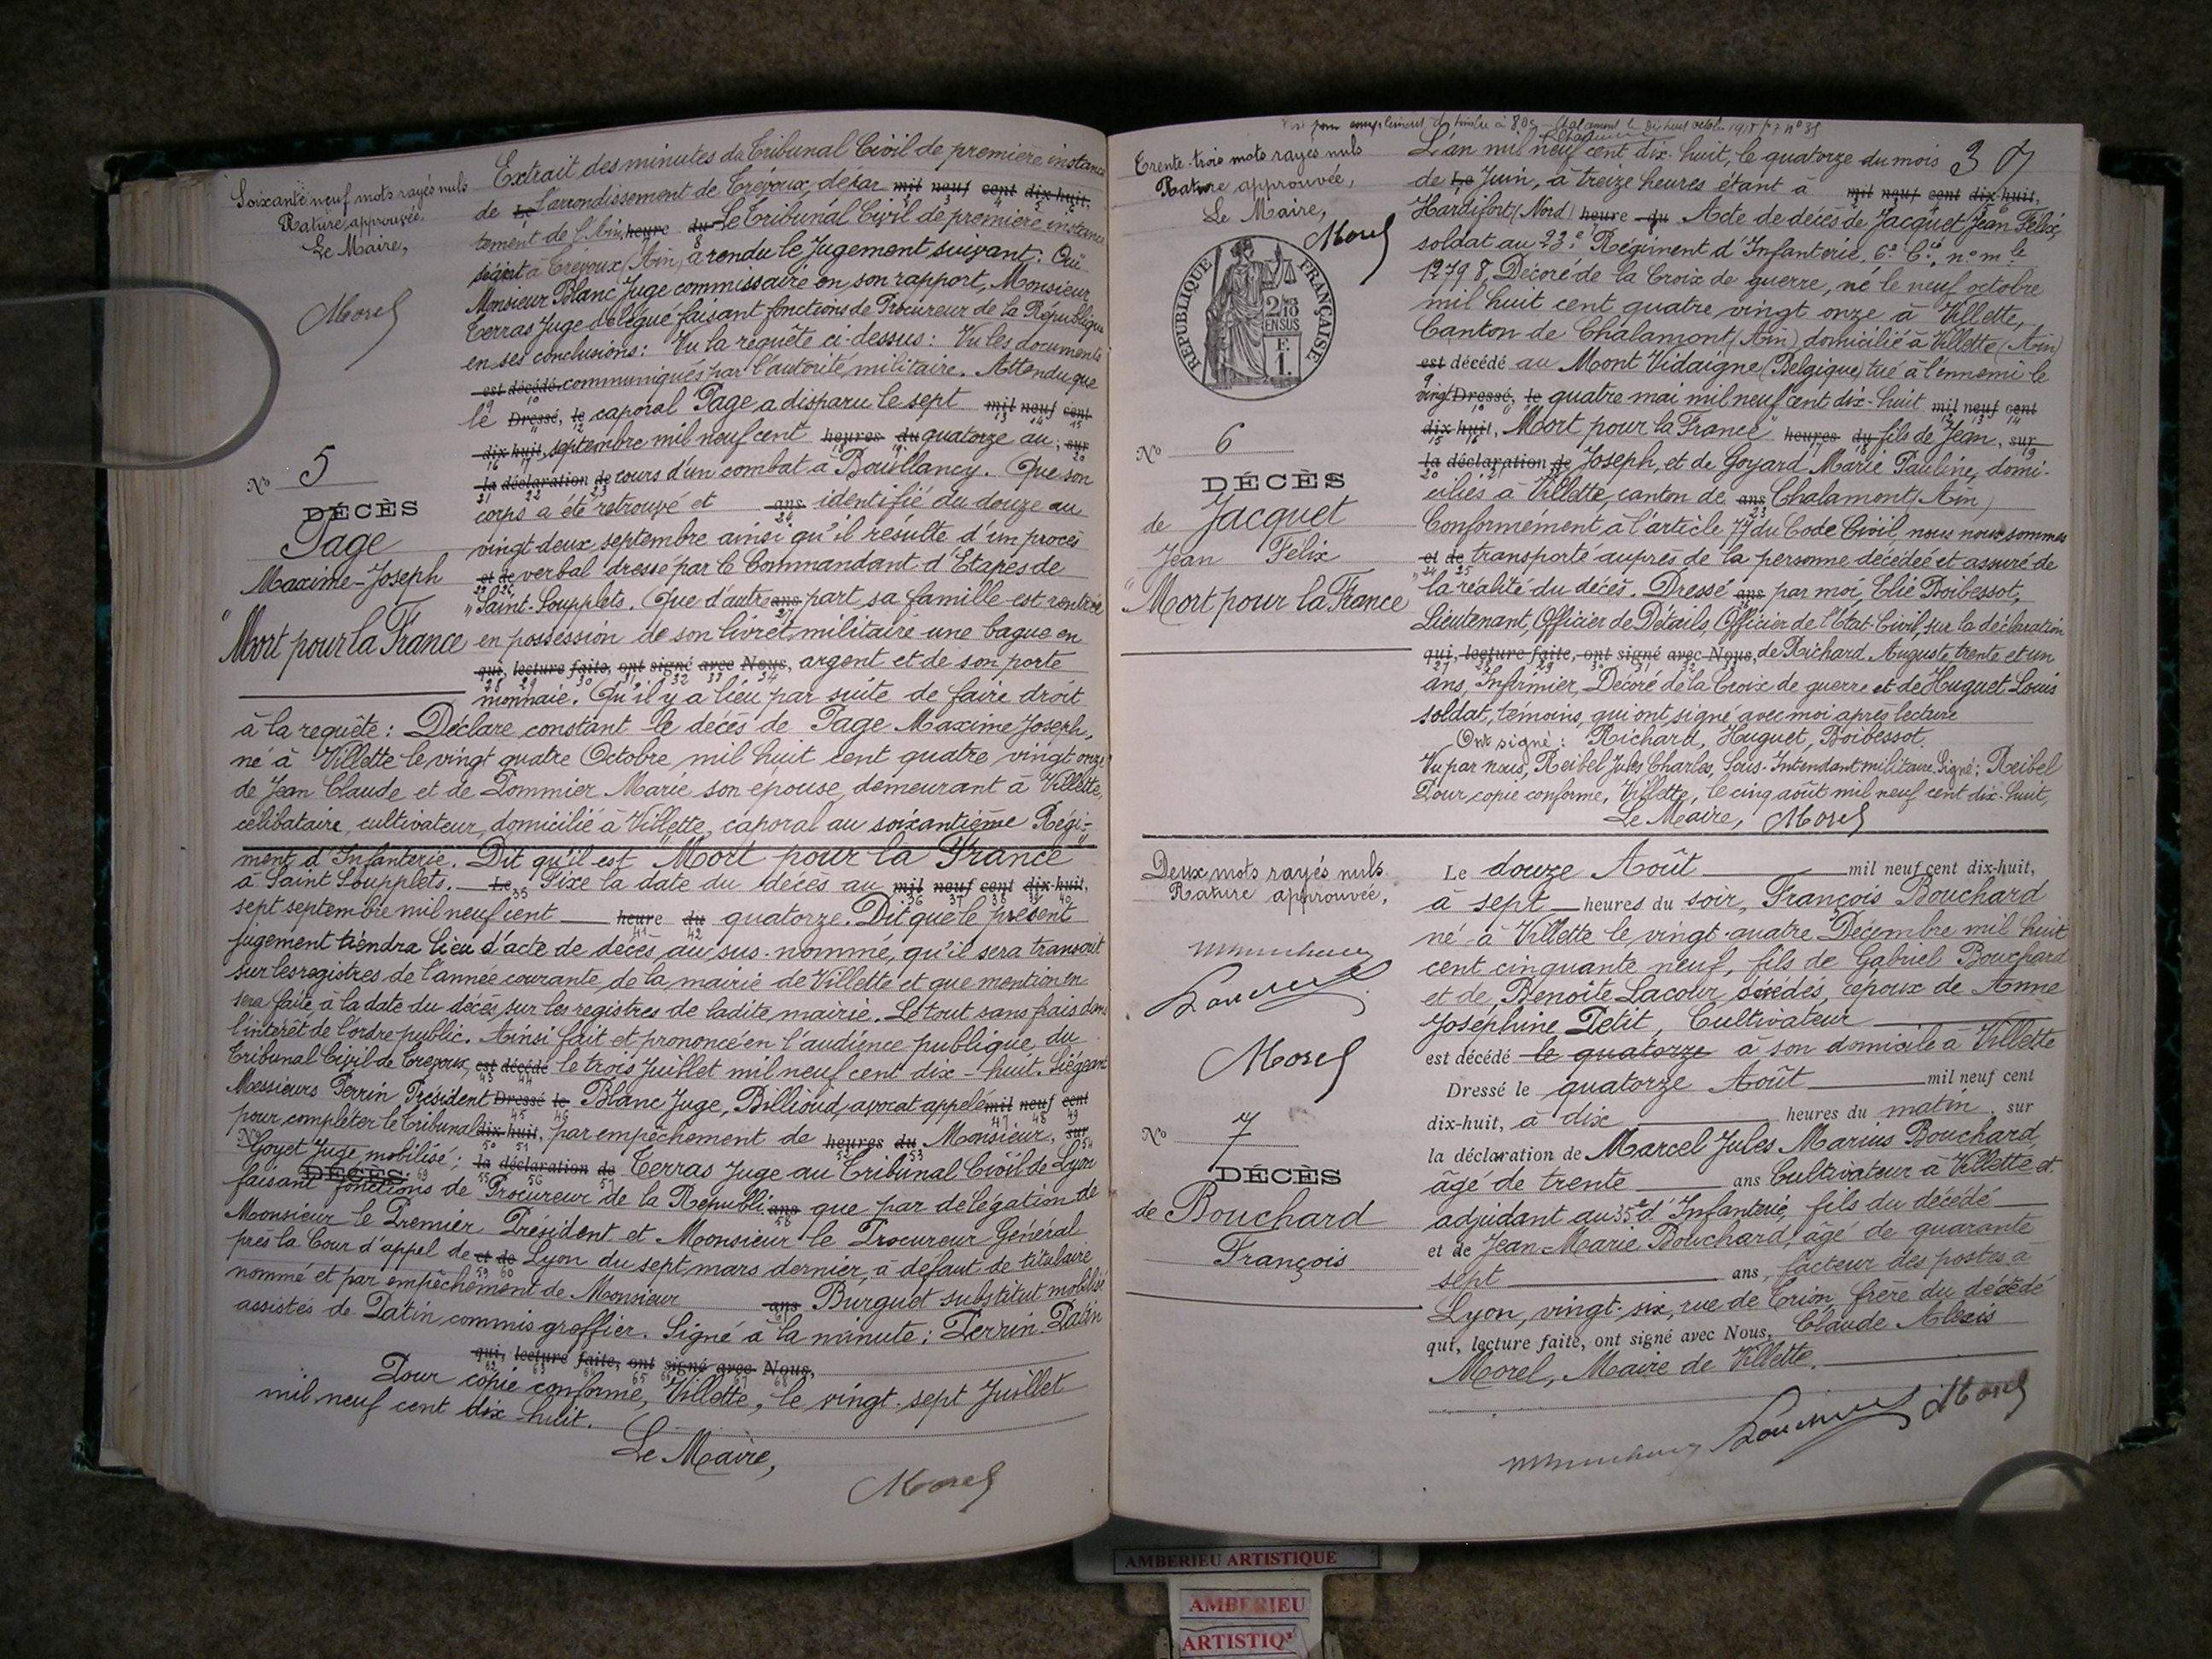 Soixante neuf mots rayés nuls
Rature approuvée.
Le Maire,
Morel
N° 5
DÉCÈS
Page
Maxime-Joseph
"Mort pour la France"
Extrait des minutes du Tribunal Civil de première instance
de Le l'arrondissement de Trévoux, dépar mil neuf cent dix-huit,
tement de l'Ain, heure du Le Tribunal Civil de première instance
séant à Trévoux (Ain) a rendu le Jugement suivant: Ouï
Monsieur Blanc Juge commissaire en son rapport, Monsieur
Terras Juge délégué faisant fonctions de Procureur de la République
en ses conclusions: Vu la requête ci-dessus: Vu les documents
est décédé communiqués par l'autorité militaire. Attendu que
le Dressé, le caporal Page a disparu le sept mil neuf cent
dix huit, septembre mil neuf cent heures du quatorze au, sur
la déclaration de cours d'un combat à Bouillancy. Que son
corps a été retrouvé et ans identifié du douze au
vingt deux septembre ainsi qu'il résulte d'un procès
et de verbal dressé par le Commandant d'Etapes de
Saint-Soupplets. Que d'autre ans part sa famille est rentrée
en possession de son livret militaire une bague en
qui, lecture faite, ont signé avec Nous, argent et de son porte
monnaie. Qu'il y a lieu par suite de faire droit
à la requête: Déclare constant le décès de Page Maxime Joseph,
né à Villette le vingt quatre Octobre mil huit cent quatre vingt onze
de Jean Claude et de Pommier Marie son épouse, demeurant à Villette,
célibataire, cultivateur, domicilié à Villette, caporal au soixantième Régi-
ment d'Infanterie. Dit qu'il est "Mort pour la France"
à Saint Soupplets. Le Fixe la date du décès au mil neuf cent dix-huit,
sept septembre mil neuf cent heure du quatorze. Dit que le présent
jugement tiendra lieu d'acte de décès au sus-nommé, qu'il sera transcrit
sur les registres de l'année courante de la mairie de Villette et que mention en
sera faite, à la date du décès, sur les registres de ladite mairie. Le tout sans frais dans
l'intérêt de l'ordre public. Ainsi fait et prononcé en l'audience publique du
Tribunal Civil de Trévoux, est décédé le trois Juillet mil neuf cent dix-huit. Siégeant
Messieurs Perrin Président Dressé le Blanc Juge, Billioud, avocat appelé mil neuf cent
pour compléter le Tribunal dix-huit, par empêchement de heures du Monsieur, sur
N° Goyet Juge mobilisé; la déclaration de Terras Juge au Tribunal Civil de Lyon
DÉCÈS
faisant fonctions de Procureur de la Républi ans que par délégation de
Monsieur le Premier Président et Monsieur le Procureur Général
près la Cour d'appel de et de Lyon du sept mars dernier, à défaut de titulaire
nommé et par empêchement de Monsieur ans Burguet substitut mobilisé
assistés de Patin commis greffier. Signé à la minute: Perrin. Patin
qui, lecture faite, ont signé avec Nous,
Pour copie conforme, Villette, le vingt-sept Juillet
mil neuf cent dix-huit.
Le Maire,
Morel
Trente-trois mots rayés nuls
Rature approuvée,
Le Maire,
Morel
RÉPUBLIQUE FRANÇAISE
2/10
EN SUS
F.
1.
N° 6
DÉCÈS
de Jacquet
Jean Félix
"Mort pour la France"
37
L'an mil neuf cent dix-huit, le quatorze du mois
de Le Juin, à treize heures étant à mil neuf cent dix-huit,
Hardifort (Nord) heure du Acte de décès de Jacquet Jean Félix,
soldat au 23e Régiment d'Infanterie, 6e Cie, n° mle
12798, Décoré de la Croix de guerre, né le neuf octobre
mil huit cent quatre vingt onze à Villette,
Canton de Chalamont (Ain) domicilié à Villette (Ain)
est décédé au Mont Vidaigne (Belgique) tué à l'ennemi le
vingt Dressé, le quatre mai mil neuf cent dix-huit mil neuf cent
dix huit, "Mort pour la France" heures du fils de Jean, sur
la déclaration de Joseph, et de Goyard Marie Pauline, domi-
ciliés à Villette, canton de ans Chalamont (Ain)
Conformément à l'article 77 du Code Civil, nous nous sommes
et de transporté auprès de la personne décédée et assuré de
la réalité du décès. Dressé ans par moi, Elie Boibessot,
Lieutenant, Officier de Détails, Officier de l'Etat-Civil, sur la déclaration
qui, lecture faite, ont signé avec Nous, de Richard Auguste trente et un
ans, Infirmier, Décoré de la Croix de guerre et de Huguet Louis
soldat, témoins, qui ont signé avec moi après lecture
Ont signé: Richard, Huguet, Boibessot.
Vu par nous, Reibel Jules Charles, Sous-Intendant militaire. Signé: Reibel
Pour copie conforme, Villette, le cinq août mil neuf cent dix-huit,
Le Maire, Morel
Deux mots rayés nuls
Rature approuvée,
Morel
N° 7
DÉCÈS
de Bouchard
François
Le douze Août mil neuf cent dix-huit,
à sept heures du soir, François Bouchard
né à Villette le vingt-quatre Décembre mil huit
cent cinquante neuf, fils de Gabriel Bouchard
et de Benoîte Lacour, décédés, époux de Anne
Joséphine Petit, Cultivateur
est décédé le quatorze à son domicile à Villette
Dressé le quatorze Août mil neuf cent
dix-huit, à dix heures du matin, sur
la déclaration de Marcel Jules Marius Bouchard,
âgé de trente ans Cultivateur à Villette et
adjudant au 35e d'Infanterie, fils du décédé
et de Jean-Marie Bouchard, âgé de quarante
sept ans, facteur des postes à
Lyon, vingt-six, rue de Trion, frère du décédé
qui, lecture faite, ont signé avec Nous, Claude Alexis
Morel, Maire de Villette.
Morel
AMBERIEU ARTISTIQUE
AMBERIEU
ARTISTIQ